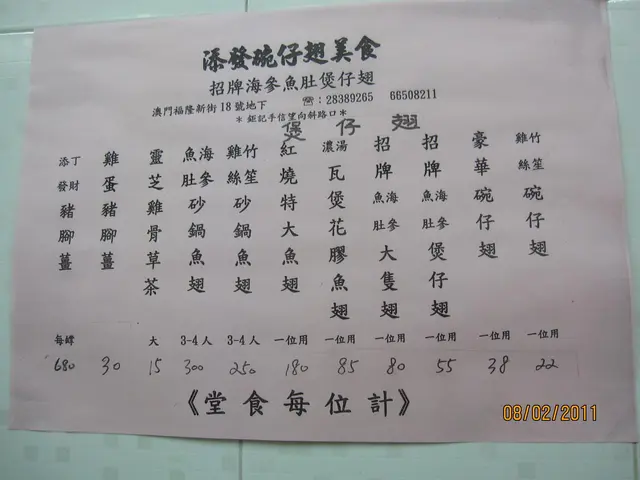 添發碗仔翅美食
招牌海參魚肚煲仔翅
澳門福隆新街18號地下 ☎:28389265 66508211
＊鉅記手信望向斜路口＊
煲仔翅
竹笙雞絲碗仔翅 一位用 22
豪華碗仔翅 一位用 38
招牌海參魚肚煲仔翅 一位用 55
招牌海參魚肚大隻翅 一位用 80
濃湯瓦煲花膠魚翅 一位用 85
紅燒特大魚翅 一位用 180
竹笙雞絲砂鍋魚翅 3-4人 250
海參魚肚砂鍋魚翅 3-4人 300
靈芝雞骨草茶 大 15
雞蛋豬腳薑 30
添丁發財豬腳薑 每 680
《堂食每位計》
08/02/2011